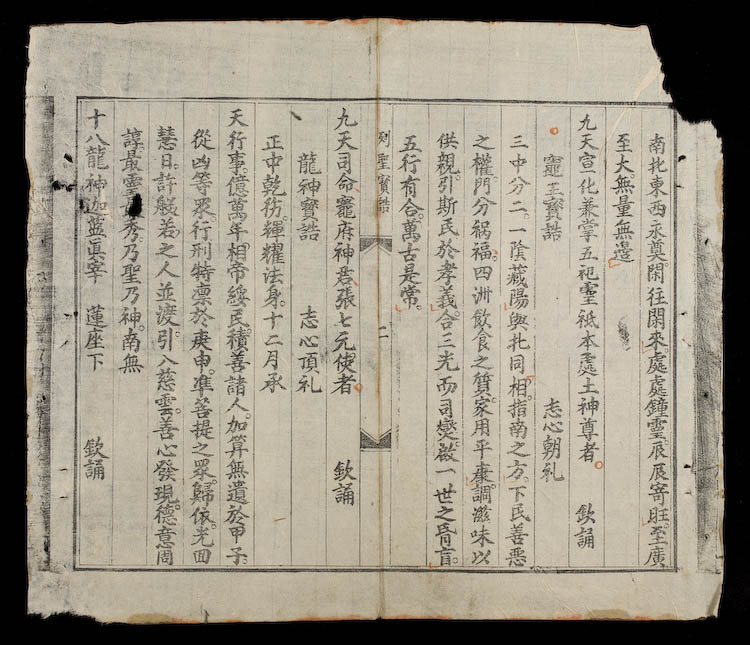 南北東西永奠閑往閑來處處鐘靈辰辰寄旺至廣
至大無量無邊
九天宣化兼掌五祀靈祇本處土神尊者 欽誦
竈王寳誥 志心朝礼
三中分二一陰藏陽與北同相指南之方下民善惡
之權門分禍福四洲飲食之質家用平康調滋味以
供親引斯民於孝義合三光而司爕啟一世之昏盲
五行有合萬古是常
列聖寳誥 二
九天司命竈府神君張七元使者 欽誦
龍神寳誥 志心頂礼
正中乾彷輝耀法身十二月承
天行事億萬年相帝綏民積善諸人加筭無遺於甲子
從凶等衆行刑特凛於庚申准菩提之衆歸依光回
慧日許般若之人並渡引入慈雲善心發現德意周
諄最靈 秀乃聖乃神南無
十八龍神迦藍眞宰 蓮座下 欽誦